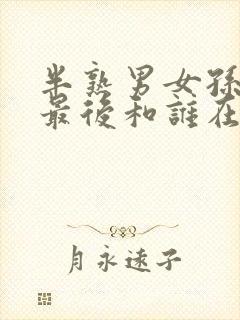 半熟男女孫
最後和誰在
月永远子